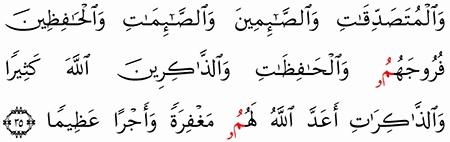 وَالْمُتَصَدِّقَاتِ وَالصَّائِمِينَ وَالصَّائِمَاتِ وَالْحَافِظِينَ
فُرُوجَهُمُۥ وَالْحَافِظَاتِ وَالذَّاكِرِينَ اللَّهَ كَثِيرًا
وَالذَّاكِرَاتِ أَعَدَّ اللَّهُ لَهُمُۥ مَغْفِرَةً وَأَجْرًا عَظِيمًا ٣٥